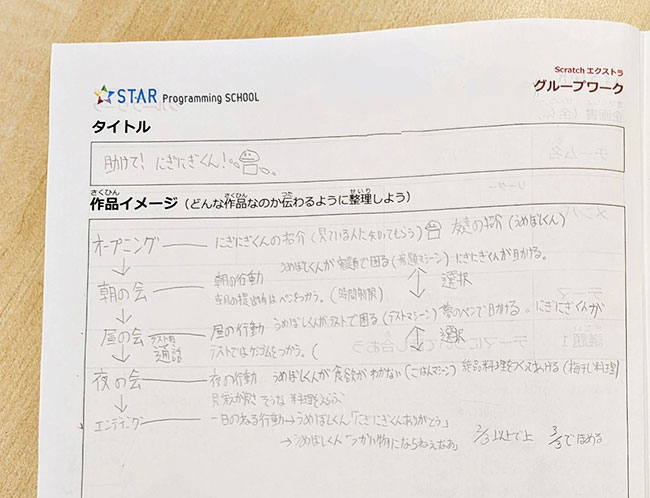 STAR Programming SCHOOL
Scratch エクストラ
グループワーク
タイトル
助けて！にぎにぎくん！
さくひん さくひん つた せいり
作品イメージ（どんな作品なのか伝わるように整理しよう）
オープニング にぎにぎくんの紹介（見ている人に知ってもらう） 友達の紹介（うめぼしくん）
朝の会 朝の行動 うめぼしくんが宿題で困る（宿題マシーン）にぎにぎくんが助ける。
（時間制限） 選択
昼の会 テスト前 通話 昼の行動 うめぼしくんがテストで困る（テストマシーン）のペンで助ける。にぎにぎくんが
テストではケシゴムをつかう。（ 選択
夜の会 夜の行動 うめぼしくんが食欲がわかない（ごはんマシーン）絶品料理をつくってあげる（梅干し料理）
そうな料理をえらぶ
エンディング 一日のねる行動→うめぼしくん「にぎにぎくんありがとう」
→うめぼしくん「つかい物にならねぇなあ」 2/3以上で上 3/3でほめる